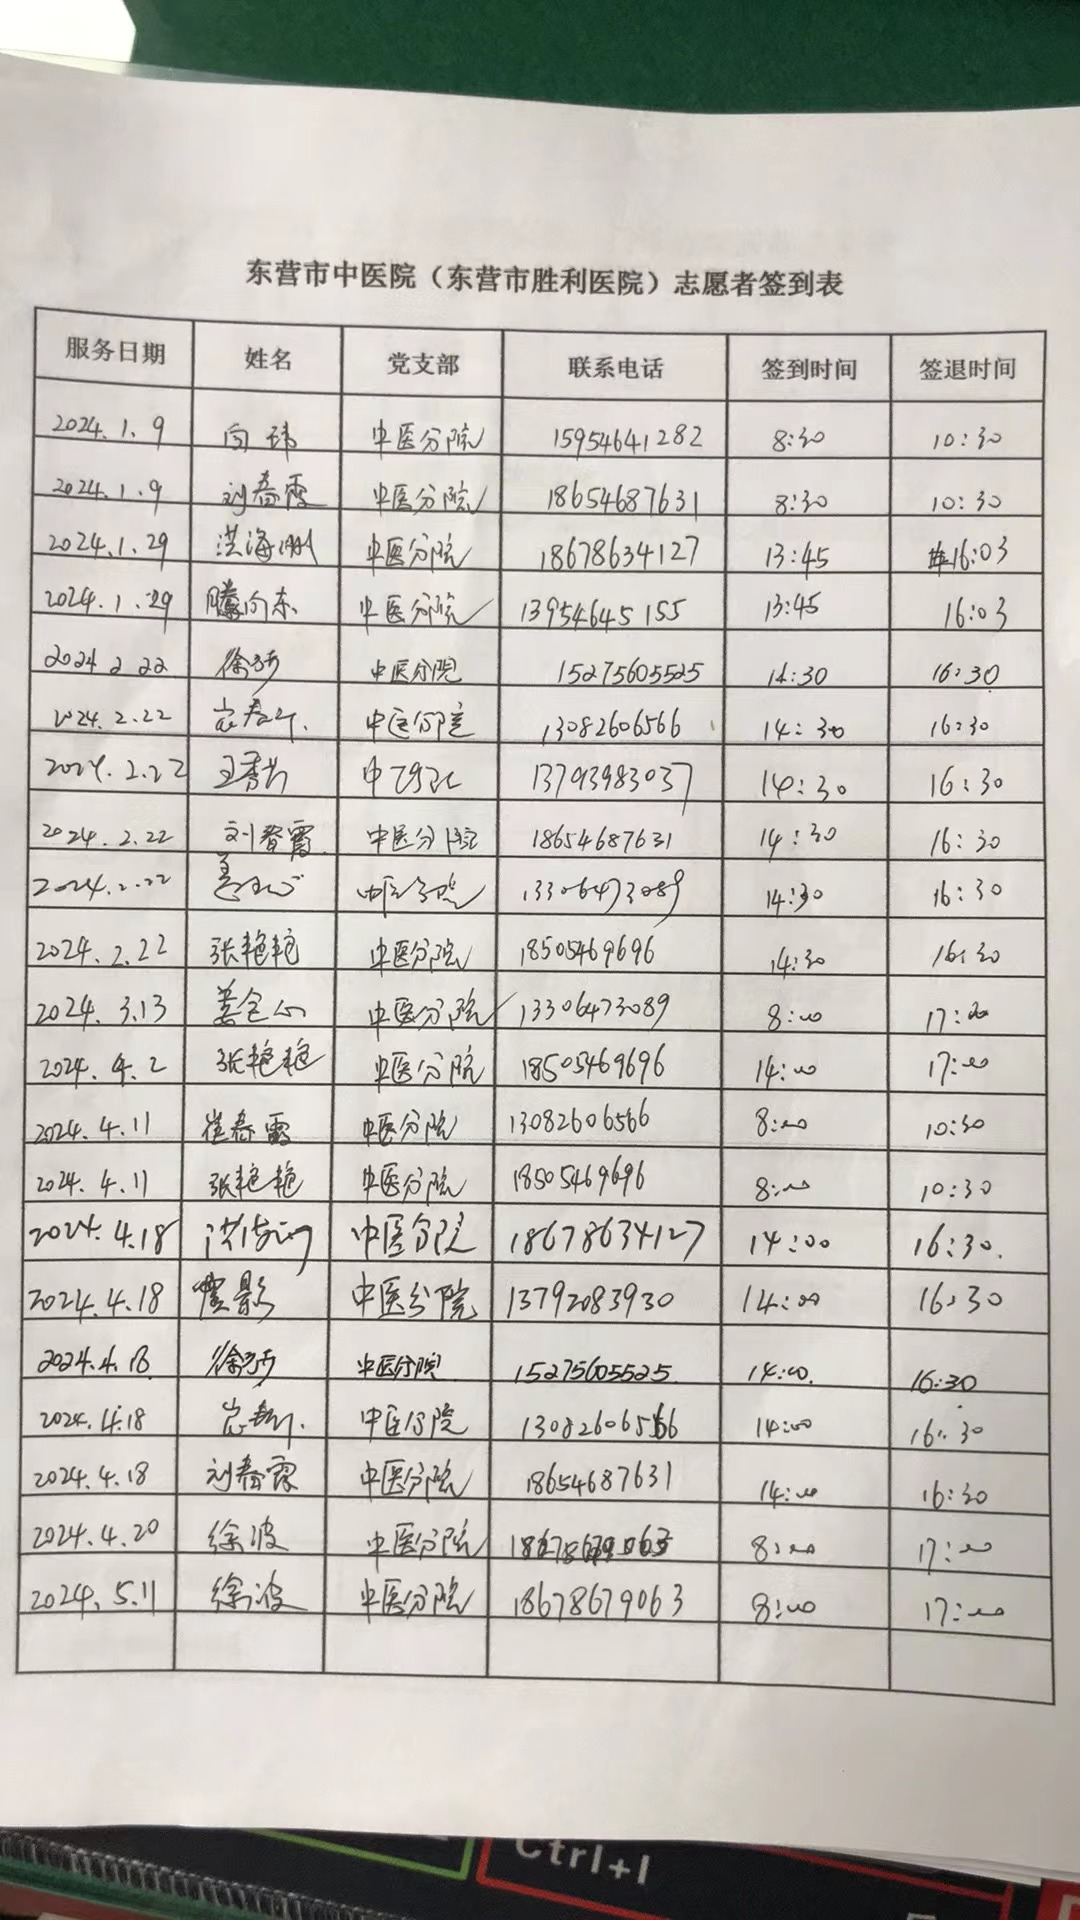 东营市中医院（东营市胜利医院）志愿者签到表
服务日期 姓名 党支部 联系电话 签到时间 签退时间
2024.1.9 向玮 中医分院 15954641282 8:30 10:30
2024.1.9 刘春霞 中医分院 18654687631 8:30 10:30
2024.1.29 洪海 中医分院 18678634127 13:45 16:03
2024.1.29 滕向东 中医分院 13954645155 13:45 16:03
2024.2.22 徐 中医分院 15275605525 14:30 16:30
2024.2.22 崔春 中医分院 13082606566 14:30 16:30
2024.2.22 王秀 中 13793983037 14:30 16:30
2024.2.22 刘春霞 中医分院 18654687631 14:30 16:30
2024.2.22 姜 中医分院 13306473089 14:30 16:30
2024.2.22 张艳艳 中医分院 18505469696 14:30 16:30
2024.3.13 姜 中医分院 13306473089 8:00 17:00
2024.4.2 张艳艳 中医分院 18505469696 14:00 17:00
2024.4.11 崔春霞 中医分院 13082606566 8:00 10:30
2024.4.11 张艳艳 中医分院 18505469696 8:00 10:30
2024.4.18 洪海 中医分院 18678634127 14:00 16:30.
2024.4.18 贾影 中医分院 13792083930 14:00 16:30
2024.4.18 徐 中医分院 15275605525 14:00. 16:30
2024.4.18 崔春 中医分院 13082606566 14:00 16:30
2024.4.18 刘春霞 中医分院 18654687631 14:00 16:30
2024.4.20 徐波 中医分院 18678679063 8:00 17:00
2024.5.11 徐波 中医分院 18678679063 8:00 17:00
Ctrl+I